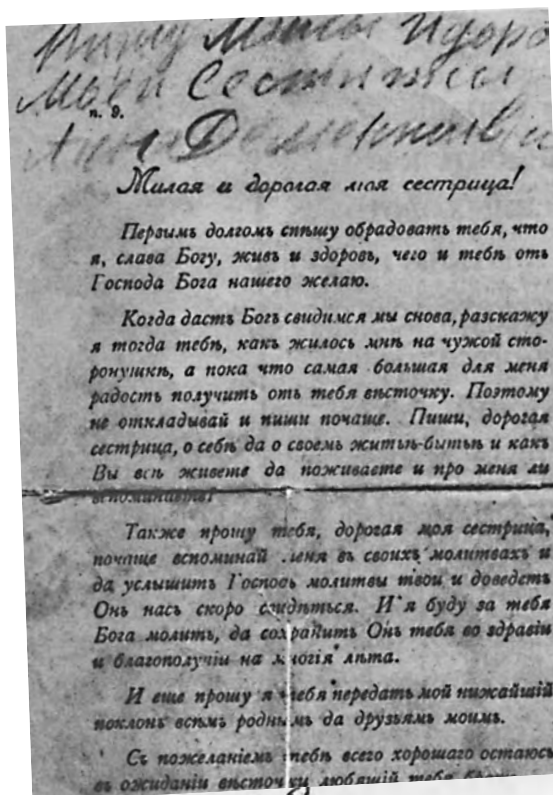 Пишу
Моей Сестрицы
п. 9.
Милая и дорогая моя сестрица!
Первымъ долгомъ спѣшу обрадовать тебя, что
я, слава Богу, живъ и здоровъ, чего и тебѣ отъ
Господа Бога нашего желаю.
Когда дастъ Богъ свидимся мы снова, разскажу
я тогда тебѣ, какъ жилось мнѣ на чужой сто-
ронушкѣ, а пока что самая большая для меня
радость получить отъ тебя вѣсточку. Поэтому
не откладывай и пиши почаще. Пиши, дорогая
сестрица, о себѣ да о своемъ житьѣ-бытьѣ и какъ
Вы всѣ живете да поживаете и про меня ли
вспоминаете?
Также прошу тебя, дорогая моя сестрица,
почаще вспоминай меня въ своихъ молитвахъ и
да услышитъ Господь молитвы твои и доведетъ
Онъ насъ скоро свидѣться. И я буду за тебя
Бога молить, да сохранитъ Онъ тебя во здравіи
и благополучіи на многія лѣта.
И еще прошу я тебя передать мой нижайшій
поклонъ всѣмъ роднымъ да друзьямъ моимъ.
Съ пожеланіемъ тебѣ всего хорошаго остаюсь
въ ожиданіи вѣсточки любящій тебя